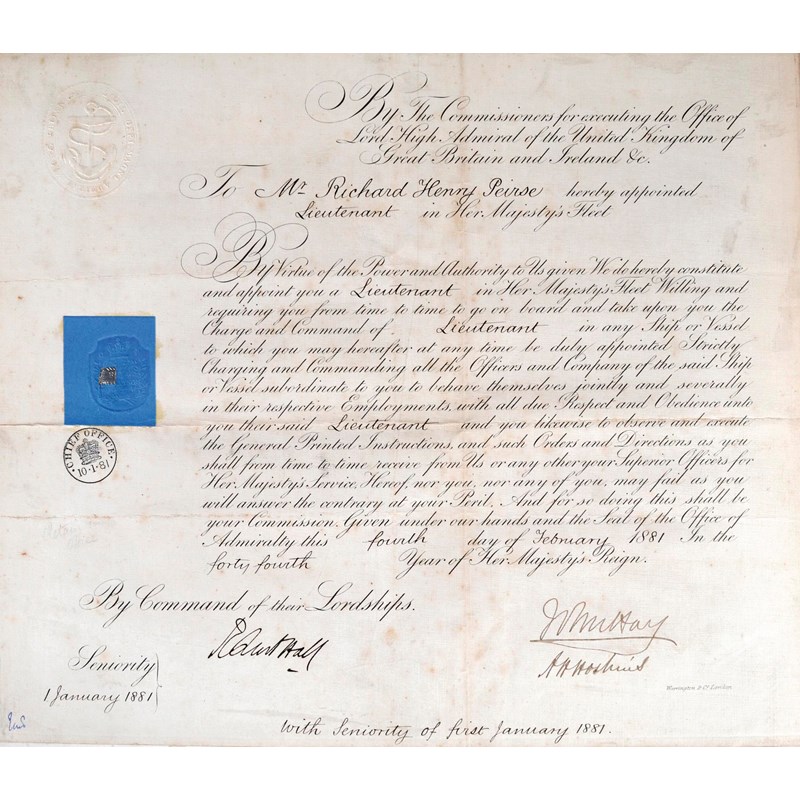 By The Commissioners for executing the Office of
Lord High Admiral of the United Kingdom of
Great Britain and Ireland &c.
To Mr. Richard Henry Peirse hereby appointed
Lieutenant in Her Majesty's Fleet
By Virtue of the Power and Authority to Us given We do hereby constitute
and appoint you a Lieutenant in Her Majesty's Fleet Willing and
requiring you from time to time to go on board and take upon you the
Charge and Command of Lieutenant in any Ship or Vessel
to which you may hereafter at any time be duly appointed Strictly
Charging and Commanding all the Officers and Company of the said Ship
or Vessel subordinate to you to behave themselves jointly and severally
in their respective Employments, with all due Respect and Obedience unto
you their said Lieutenant and you likewise to observe and execute
the General Printed Instructions, and such Orders and Directions as you
shall from time to time receive from Us or any other your Superior Officers for
Her Majesty's Service, Hereof, nor you, nor any of you, may fail as you
will answer the contrary at your Peril. And for so doing this shall be
your Commission. Given under our hands and the Seal of the Office of
Admiralty this fourth day of February 1881 In the
forty fourth Year of Her Majesty's Reign.
CHIEF OFFICE
10·1·81
By Command of their Lordships.
Robert Hall
John Hay
A H Hoskins
Seniority
1 January 1881
Warrington & Co. London
With Seniority of first January 1881.